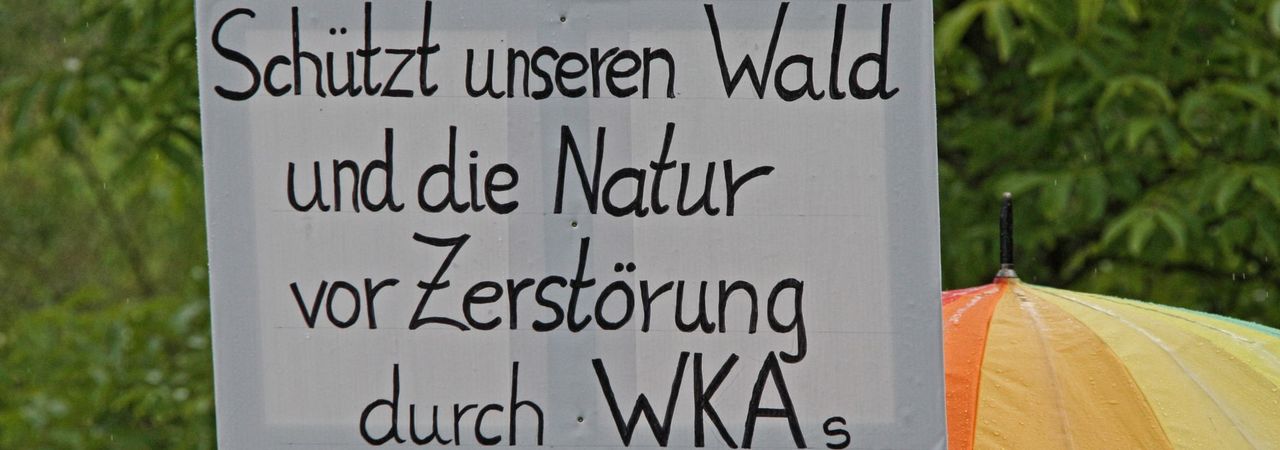 Schützt unseren Wald
und die Natur
vor Zerstörung
durch WKAs